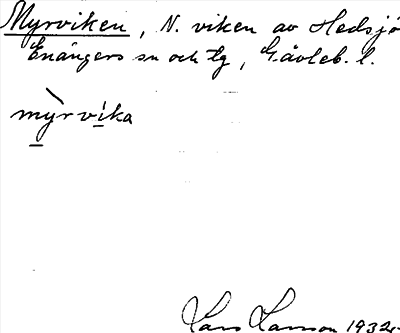 Myrviken, N. viken av Hedsjö
Enångers sn och tg, Gävleb. l.
mỳrvika
Lars Larsson 1932